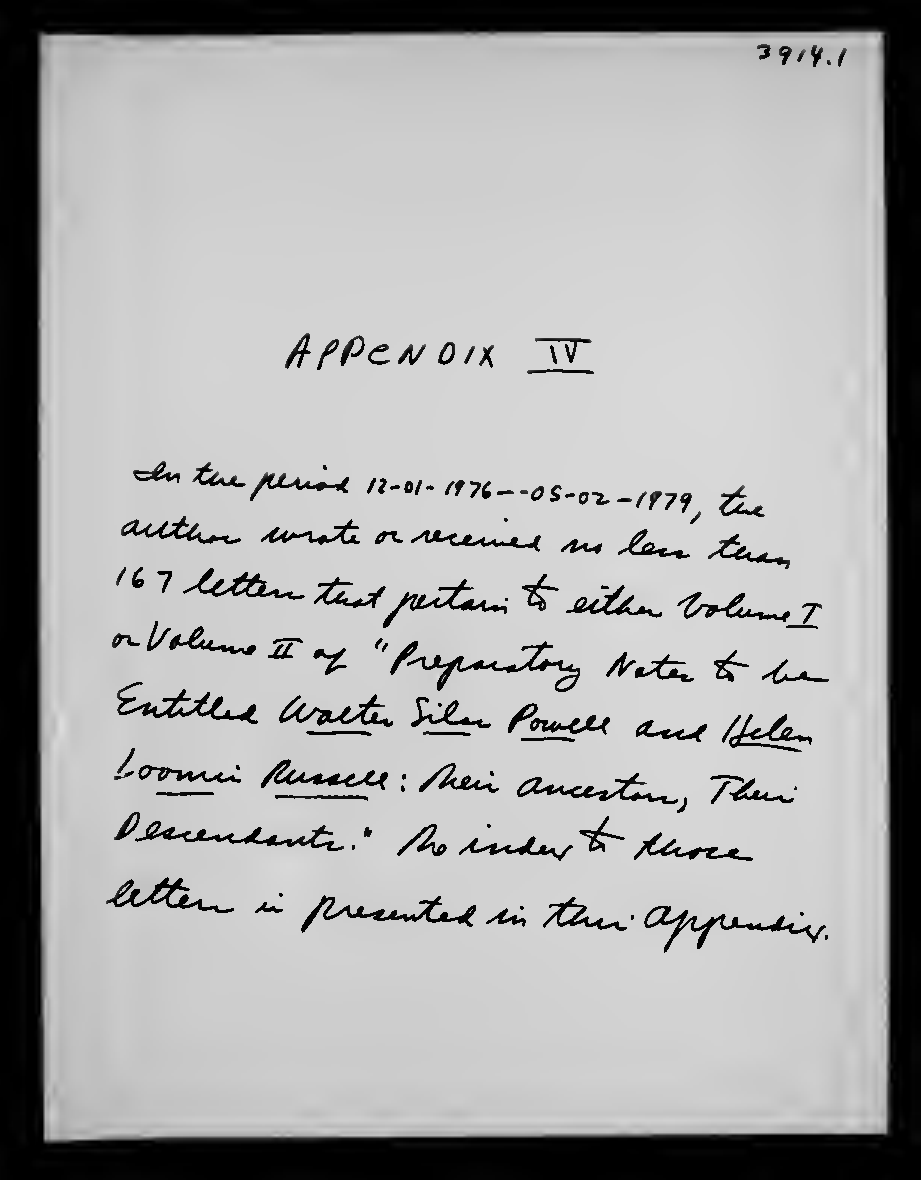 3914.1
APPENDIX IV
In the period 12-01-1976--05-02-1979, the
author wrote or received no less than
167 letters that pertain to either Volume I
or Volume II of "Preparatory Notes to be
Entitled Walter Silas Powell and Helen
Loomis Russell: Their Ancestors, Their
Descendants." The index to those
letters is presented in this Appendix.